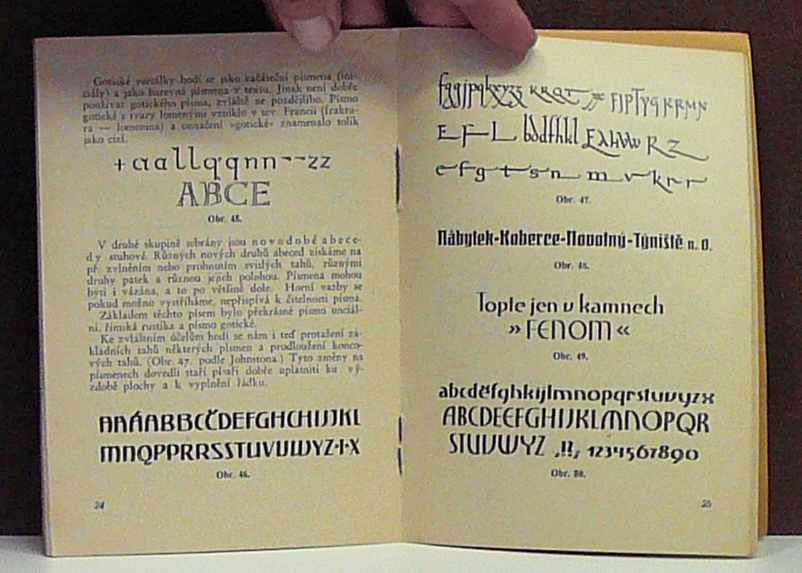 Gotické verzálky hodí se jako začáteční písmena (ini-
ciály) a jako barevná písmena v textu. Jinak není dobře
používat gotického písma, zvláště ne pozdějšího. Písmo
gotické s tvary lomenými vzniklo v sev. Francii (fraktu-
ra — lomenina) a označení »gotické« znamenalo tolik
jako cizí.
+ a a l l q q n n ~ ~ z z
ABCE
Obr. 45.
V druhé skupině sebrány jsou novodobé abece-
dy stuhové. Různých nových druhů abeced získáme na
př. zvlněním nebo prohnutím svislých tahů, různými
druhy patek a různou jejich polohou. Písmena mohou
býti i vázána, a to po většině dole. Horní vazby se
pokud možno vystříháme, nepřispívá k čitelnosti písma.
Základem těchto písem bylo překrásné písmo unciál-
ní, římská rustika a písmo gotické.
Ke zvláštním účelům hodí se nám i teď protažení zá-
kladních tahů některých písmen a prodloužení konco-
vých tahů. (Obr. 47. podle Johnstona.) Tyto změny na
písmenech dovedli staří písaři dobře uplatniti ku vý-
zdobě plochy a k vyplnění řádku.
AAÁABBCČDEFGHCHIJJKL
MNQPPRRSSTUVUWYZ·I·X
Obr. 46.
24
E F L bddfhkl EAHVW R Z
e f g t s n m v k r r
Obr. 47.
Nábytek-Koberce-Novotný-Týniště n. O.
Obr. 48.
Topte jen v kamnech
» FENOM «
Obr. 49.
abcděfghkijlmnopqrstuvyzx
ABCDEEFGHIJKLMNOPQR
STUVWYZ .!!, 1234567890
Obr. 50.
25